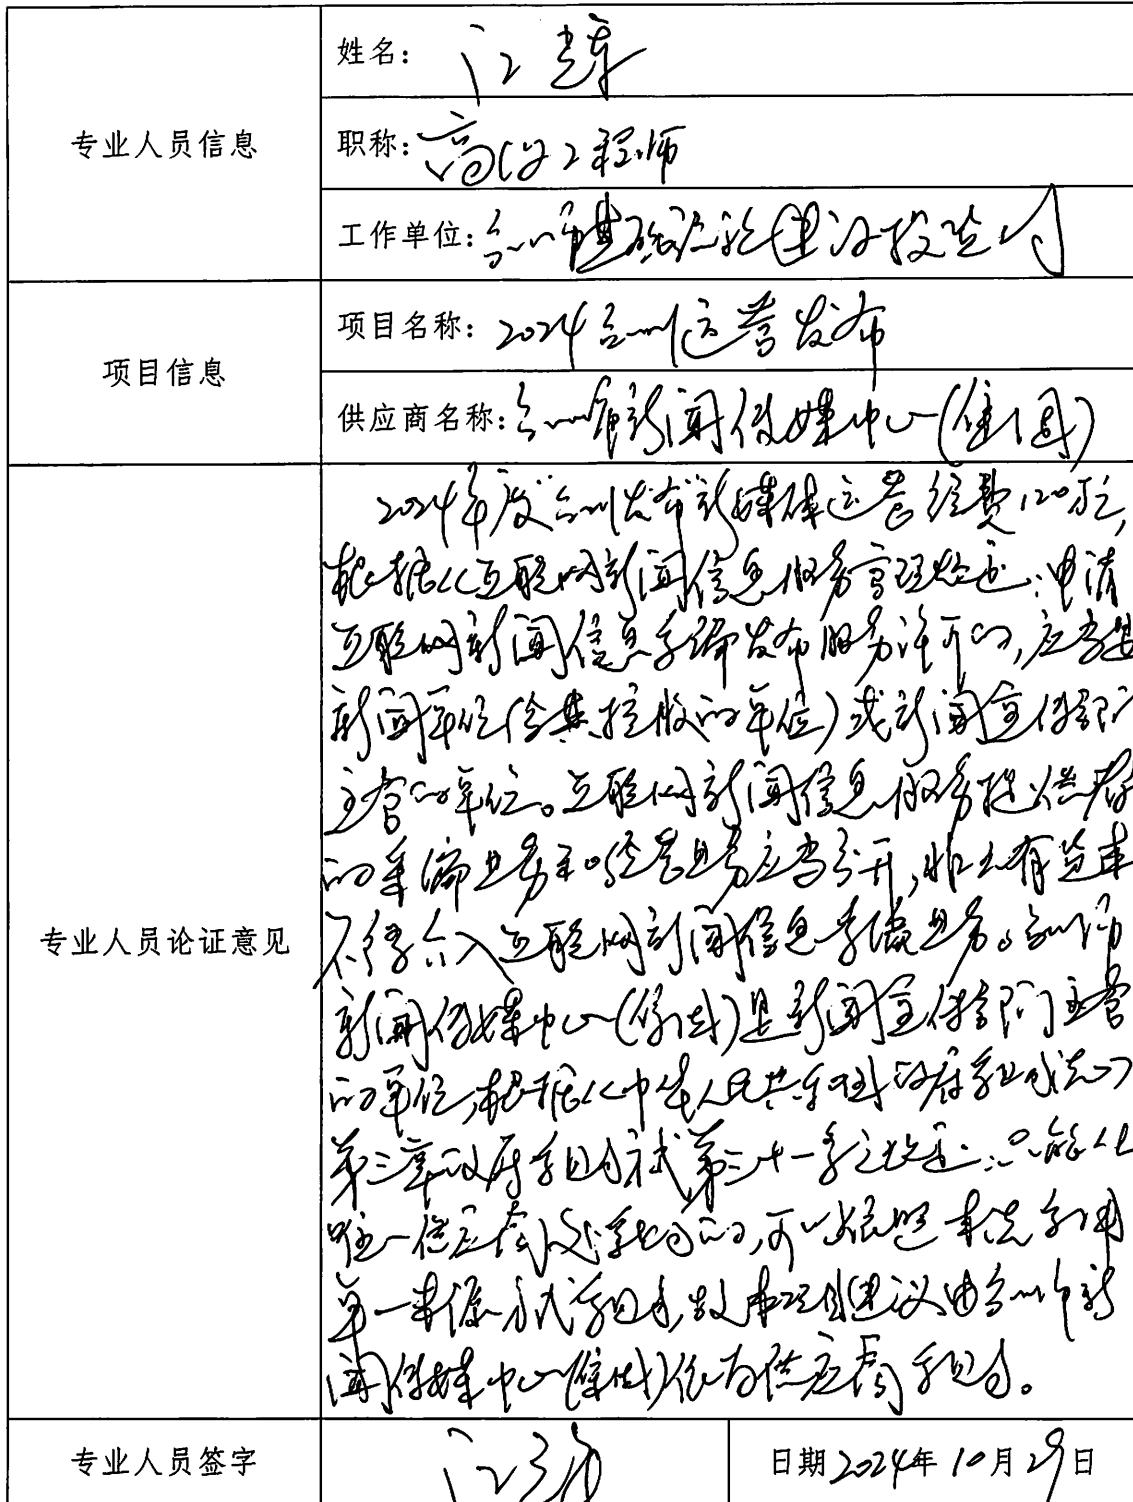 专业人员信息
姓名: 江
职称: 高级工程师
工作单位: 台州市基础设施建设投资公司
项目信息
项目名称: 2024台州运营发布
供应商名称: 台州市新闻传媒中心(集团)
专业人员论证意见
2024年度“台州发布”新媒体运营经费120万元,
根据《互联网新闻信息服务管理规定》:申请
互联网新闻信息采编发布服务许可的,应当是
新闻单位(含其控股的单位)或新闻宣传部门
主管的单位。互联网新闻信息服务提供者
的采编业务和经营业务应当分开,非公有资本
不得介入互联网新闻信息采编业务。台州市
新闻传媒中心(集团)是新闻宣传部门主管
的单位,根据《中华人民共和国政府采购法》
第三章政府采购方式第三十一条之规定:只能从
唯一供应商处采购的,可以依照本法采用
单一来源方式采购,故本项目建议由台州市新
闻传媒中心(集团)作为供应商采购。
专业人员签字
江
日期2024年10月29日